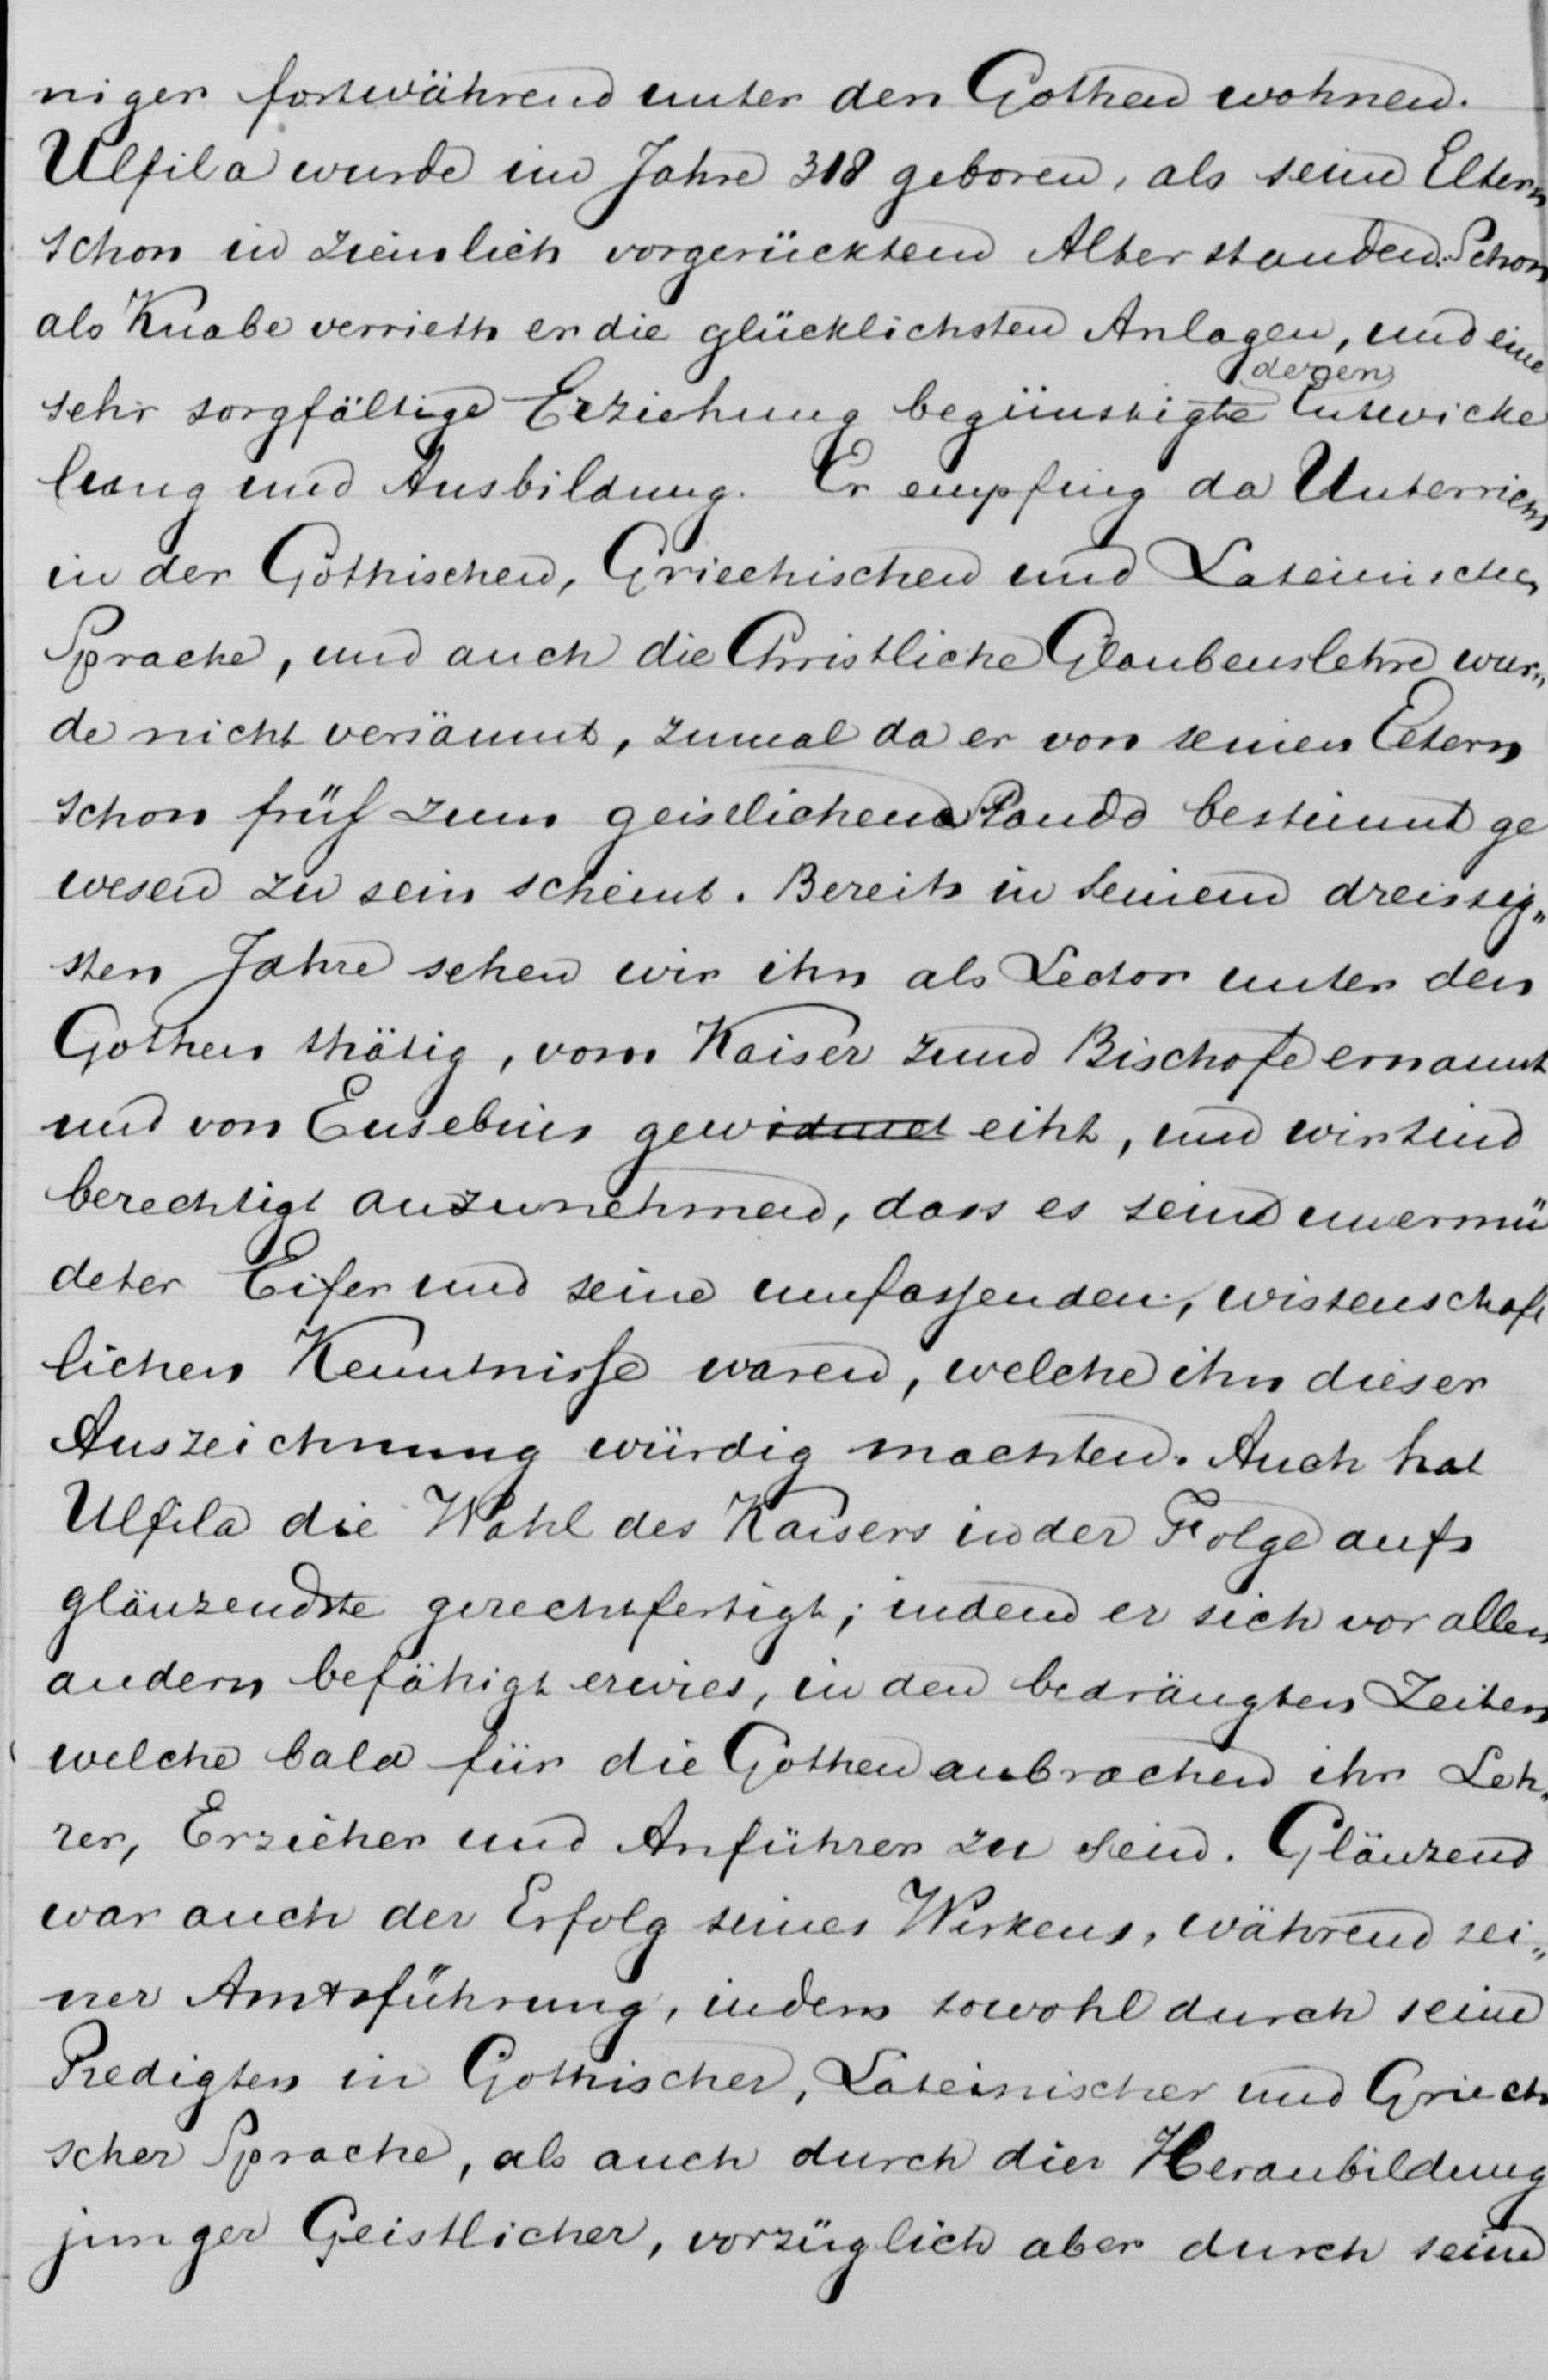 niger fortwährend unter den Gothen wohnen.
Ulfila wurde im Jahre 318 geboren, als seine Eltern
schon in ziemlich vorgerücktem Alter standen. Schon
als Knabe verrieth er die glücklichsten Anlagen, und eine
deren
sehr sorgfältige Erziehung begünstigte Entwicke
lung und Ausbildung. Er empfing da Unterricht
in der Gothischen, Griechischen und Lateinischen
Sprache, und auch die Christliche Glaubenslehre wur„
de nicht versäumt, zumal da er von seinen Eltern
schon früh zum geistlichen Stande bestimmt ge
wesen zu sein scheint. Bereits in seinem dreissig„
sten Jahre sehen wir ihn als Lector unter den
Gothen thätig, vom Kaiser zum Bischofe ernannt
und von Eusebius gewidmet eiht, und wir sind
berechtigt anzunehmen, dass es sein unermü
deter Eifer und seine umfassenden, wissenschaft
lichen Kenntnisse waren, welche ihn dieser
Auszeichnung würdig machten. Auch hat
Ulfila die Wahl des Kaisers in der Folge aufs
glänzendste gerechtfertigt; indem er sich vor allen
andern befähigt erwies, in den bedrängten Zeiten
welche bald für die Gothen anbrachen ihr Leh„
rer, Erzieher und Anführer zu sein. Glänzend
war auch der Erfolg seines Wirkens, während sei„
ner Amtsführung, indem sowohl durch seine
Predigten in Gothischer, Lateinischer und Griech
scher Sprache, als auch durch die Heranbildung
junger Geistlicher, vorzüglich aber durch seine